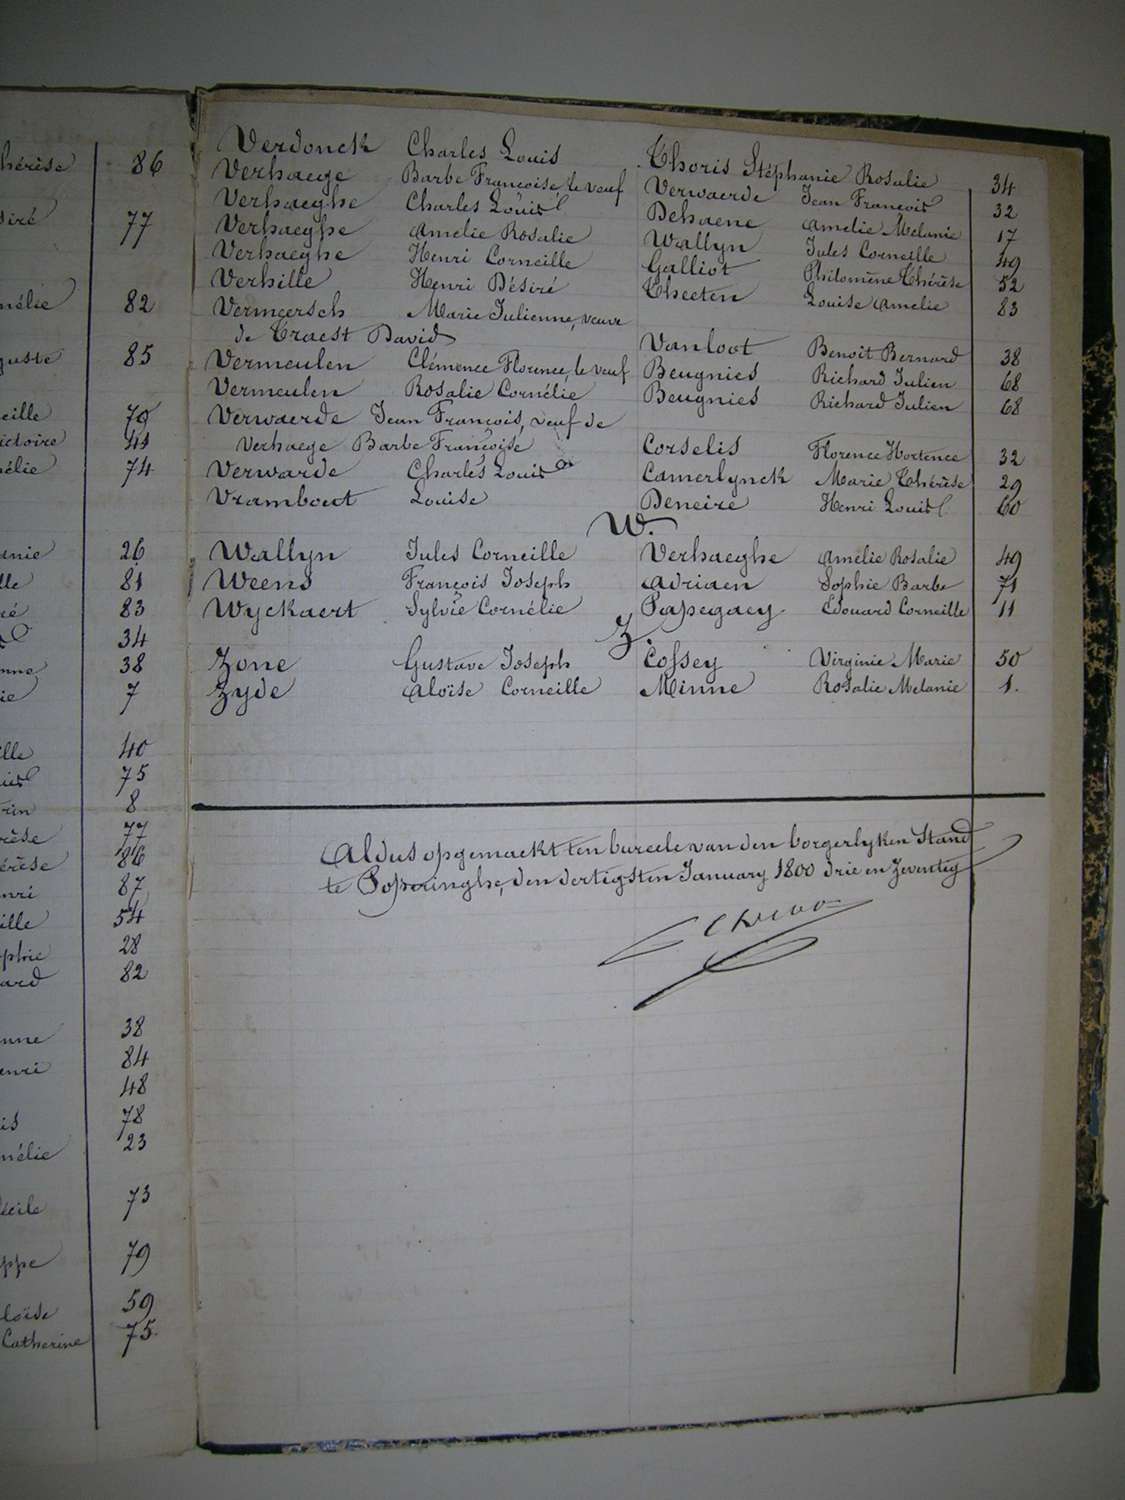 hérèse 86
siré 77
mélie 82
guste 85
eille 79
ictoire 41
élie 74
anie 26
lle 81
ré 83
34
enne 38
ie 7
ille 40
75
rin 8
rèse 77
érèse 86
enri 87
ille 54
ophie 28
ard 82
enne 38
enri 84
48
is 78
mélie 23
écile 73
ippe 79
loïse 59
Catherine 75
Verdonck Charles Louis Thoris Stéphanie Rosalie 34
Verhaege Barbe Françoise, le veuf Verwaerde Jean François 32
Verhaeghe Charles Louis Dehaene Amelie Mélanie 17
Verhaeghe Amelie Rosalie Wallyn Jules Corneille 49
Verhaeghe Henri Corneille Galliot Philomène Thérèse 52
Verhille Henri Désiré Theeten Louise Amelie 83
Vermeersch Marie Julienne, veuve
de Traest David Vanloot Benoît Bernard 38
Vermeulen Clémence Florence, le veuf Beugnies Richard Julien 68
Vermeulen Rosalie Cornélie Beugnies Richard Julien 68
Verwaerde Jean François, veuf de
Verhaege Barbe Françoise Corselis Florence Hortence 32
Verwarde Charles Louis Camerlynck Marie Thérèse 29
Vrambout Louise Deneire Henri Louis 60
W.
Wallyn Jules Corneille Verhaeghe Amélie Rosalie 49
Weens François Joseph Adriaen Sophie Barbe 71
Wyckaert Sylvie Cornélie Papegaey Edouard Corneille 11
Z.
Zone Gustave Joseph Cossey Virginie Marie 50
Zyde Aloïse Corneille Minne Rosalie Melanie 1.
Aldus opgemaekt ten bureele van den borgerlyken Stand
te Poperinghe, den dertigsten January 1800 drie en Zeventig